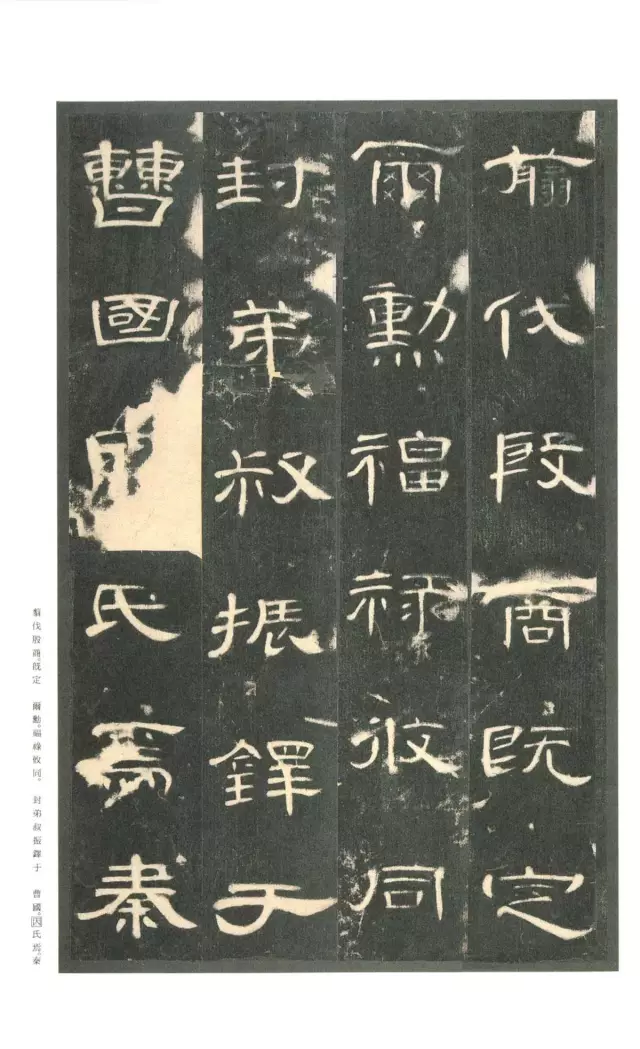 翦伐殷商既定
爾勳福祿攸同
封弟叔振鐸于
曹國因氏焉秦
翦伐殷商。既定　爾勳。福祿攸同。　封弟叔振鐸于　曹國。因氏焉。秦